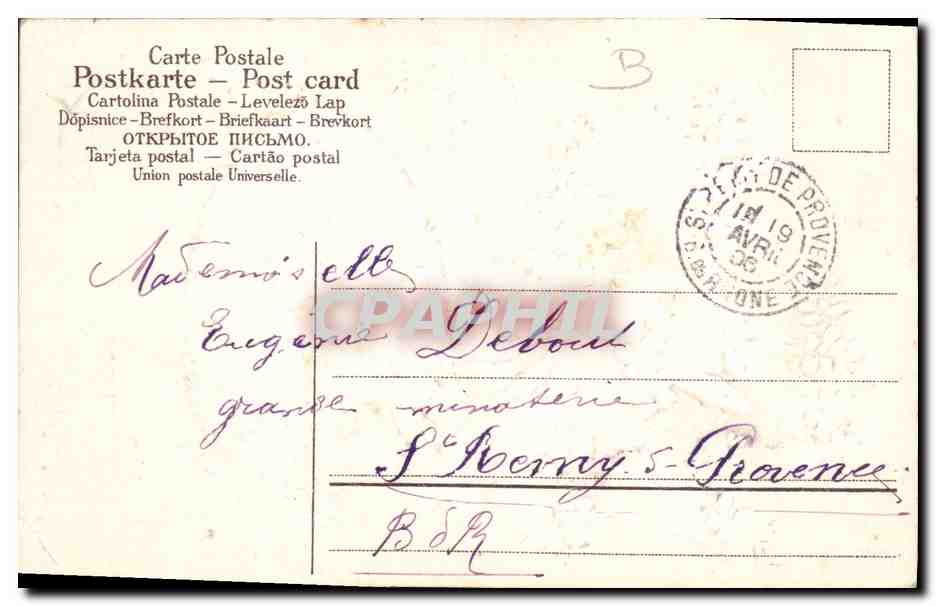 Carte Postale
Postkarte – Post card
Cartolina Postale – Levelező Lap
Dópisnice – Brefkort – Briefkaart – Brevkort
ОТКРЫТОЕ ПИСЬМО.
Tarjeta postal — Cartão postal
Union postale Universelle.
B
ST REMY DE PROVENCE
19
AVRIL
06
Bches DU RHONE
CPARHIL
Mademoiselle
Eugénie Debout
grande minoterie
St Remy s- Provence
B d R